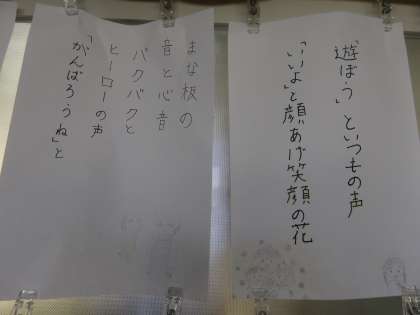 「遊ぼう」といつもの声
「いいよ」と顔あげ笑顔の花
まな板の
音と心音
バクバクと
ヒーローの声
「がんばろうね」と